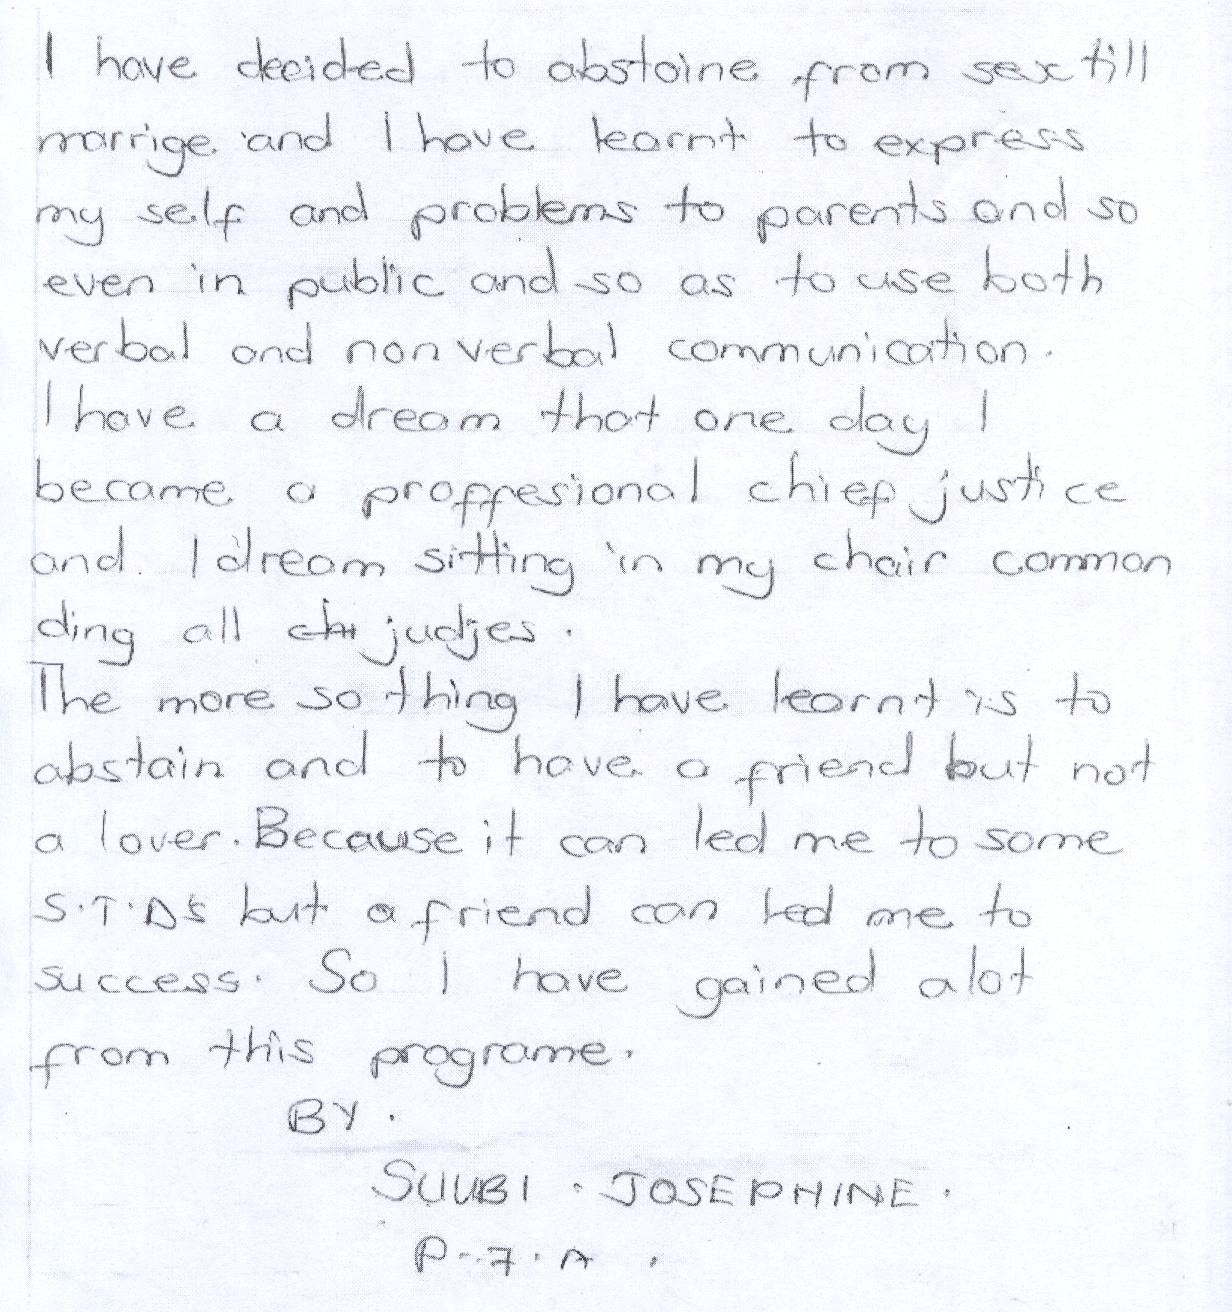 I have decided to abstaine from sex till
marrige and I have learnt to express
my self and problems to parents and so
even in public and so as to use both
verbal and non verbal communication.
I have a dream that one day I
became a proffesional chief justice
and. I dream sitting in my chair comman
ding all chi judjes.
The more so thing I have learnt is to
abstain and to have a friend but not
a lover. Because it can led me to some
S.T.Ds but a friend can led me to
success. So I have gained alot
from this programe.
BY.
SUUBI. JOSEPHINE.
P..7.A.